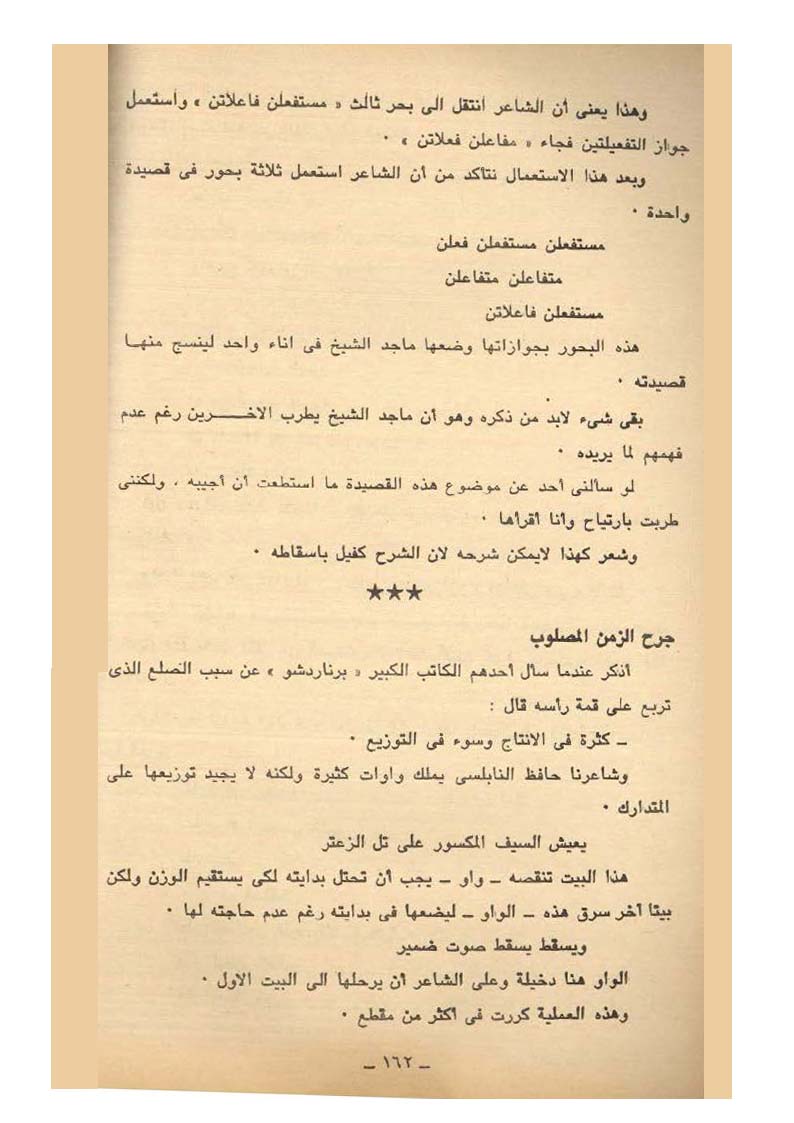 وهذا يعنى أن الشاعر انتقل الى بحر ثالث « مستفعلن فاعلاتن » واستعمل
جواز التفعيلتين فجاء « مفاعلن فعلاتن » ٠
وبعد هذا الاستعمال نتأكد من أن الشاعر استعمل ثلاثة بحور فى قصيدة
واحدة ٠
مستفعلن مستفعلن فعلن
متفاعلن متفاعلن
مستفعلن فاعلاتن
هذه البحور بجوازاتها وضعها ماجد الشيخ فى اناء واحد لينسج منهـا
قصيدته ٠
بقى شىء لابد من ذكره وهو أن ماجد الشيخ يطرب الاخـــــرين رغم عدم
فهمهم لما يريده ٠
لو سألنى أحد عن موضوع هذه القصيدة ما استطعت أن أجيبه ، ولكننى
طربت بارتياح وأنا أقرأها ٠
وشعر كهذا لايمكن شرحه لان الشرح كفيل باسقاطه ٠
★★★
جرح الزمن المصلوب
أذكر عندما سأل أحدهم الكاتب الكبير « برناردشو » عن سبب الصلع الذى
تربع على قمة رأسه قال :
ـ كثرة فى الانتاج وسوء فى التوزيع ٠
وشاعرنا حافظ النابلسى يملك واوات كثيرة ولكنه لا يجيد توزيعها على
المتدارك ٠
يعيش السيف المكسور على تل الزعتر
هذا البيت تنقصه ـ واو ـ يجب أن تحتل بدايته لكى يستقيم الوزن ولكن
بيتا آخر سرق هذه ـ الواو ـ ليضعها فى بدايته رغم عدم حاجته لها ٠
ويسقط يسقط صوت ضمير
الواو هنا دخيلة وعلى الشاعر أن يرحلها الى البيت الاول ٠
وهذه العملية كررت فى أكثر من مقطع ٠
ـ ١٦٢ ـ